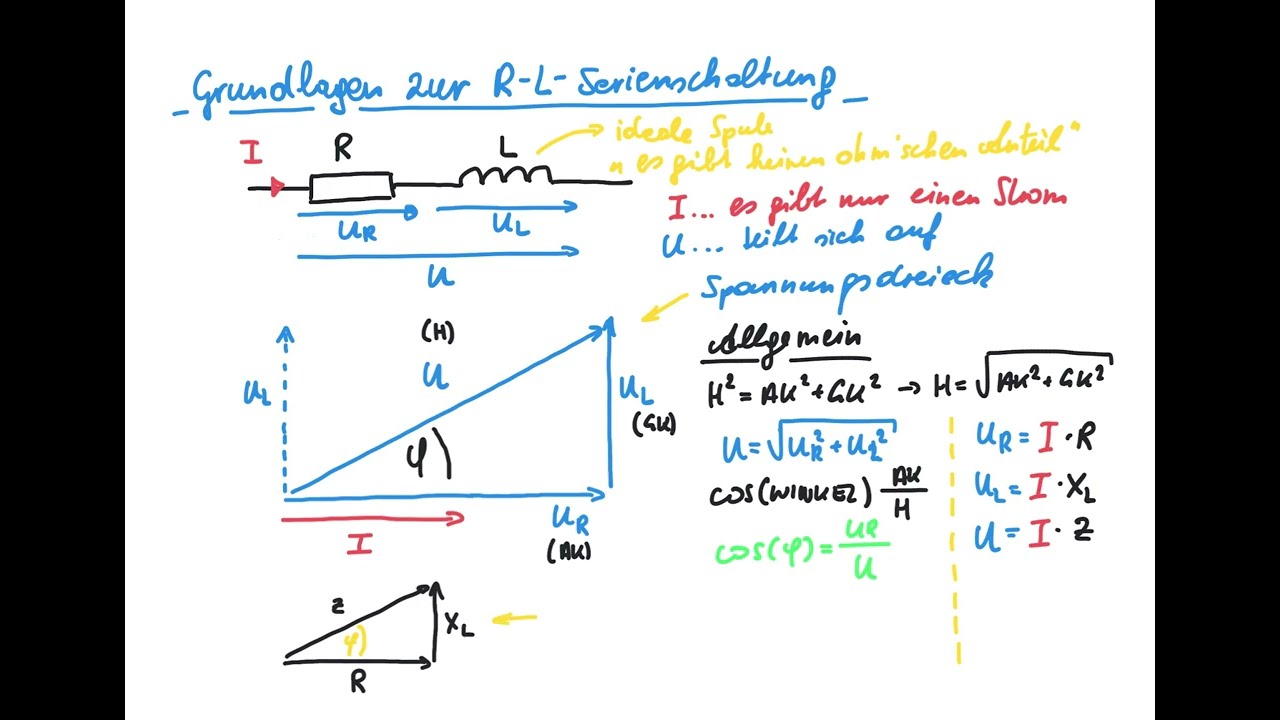 Grundlagen zur R-L-Serienschaltung
I R L
ideale Spule
"es gibt keinen ohm'schen Anteil"
I... es gibt nur einen Strom
U... teilt sich auf
UR UL
U
Spannungsdreieck
(H)
U
UL
UL
(GK)
φ
I
UR
(AK)
Allgemein
H² = AK² + GK² → H = √AK² + GK²
U = √UR² + UL²
cos(WINKEL) AK/H
cos(φ) = UR/U
UR = I · R
UL = I · XL
U = I · Z
Z
φ
XL
R